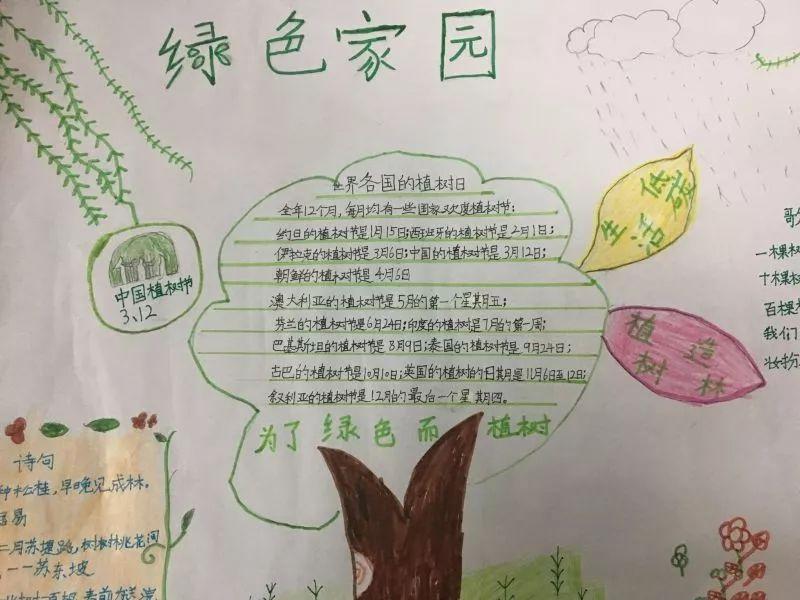 绿色家园
世界各国的植树日
全年12个月,每月均有一些国家欢度植树节:
约旦的植树节是1月15日;西班牙的植树节是2月1日;
伊拉克的植树节是3月6日;中国的植树节是3月12日;
朝鲜的植树节是4月6日
澳大利亚的植树节是5月的第一个星期五;
芬兰的植树节是6月24日;印度的植树是7月的第一周;
巴基斯坦的植树节是8月9日;泰国的植树节是9月24日;
古巴的植树节是10月10日;英国的植树的日期是11月6日至12日;
叙利亚的植树节是12月的最后一个星期四。
为了绿色而植树
中国植树节
3.12
低碳
生活
植造
树林
诗句
种松桂,早晚见成林。
居易
二月苏堤路,树树桃花间
——苏东坡
歌
一棵树
十棵树
百棵
我们
妆扮